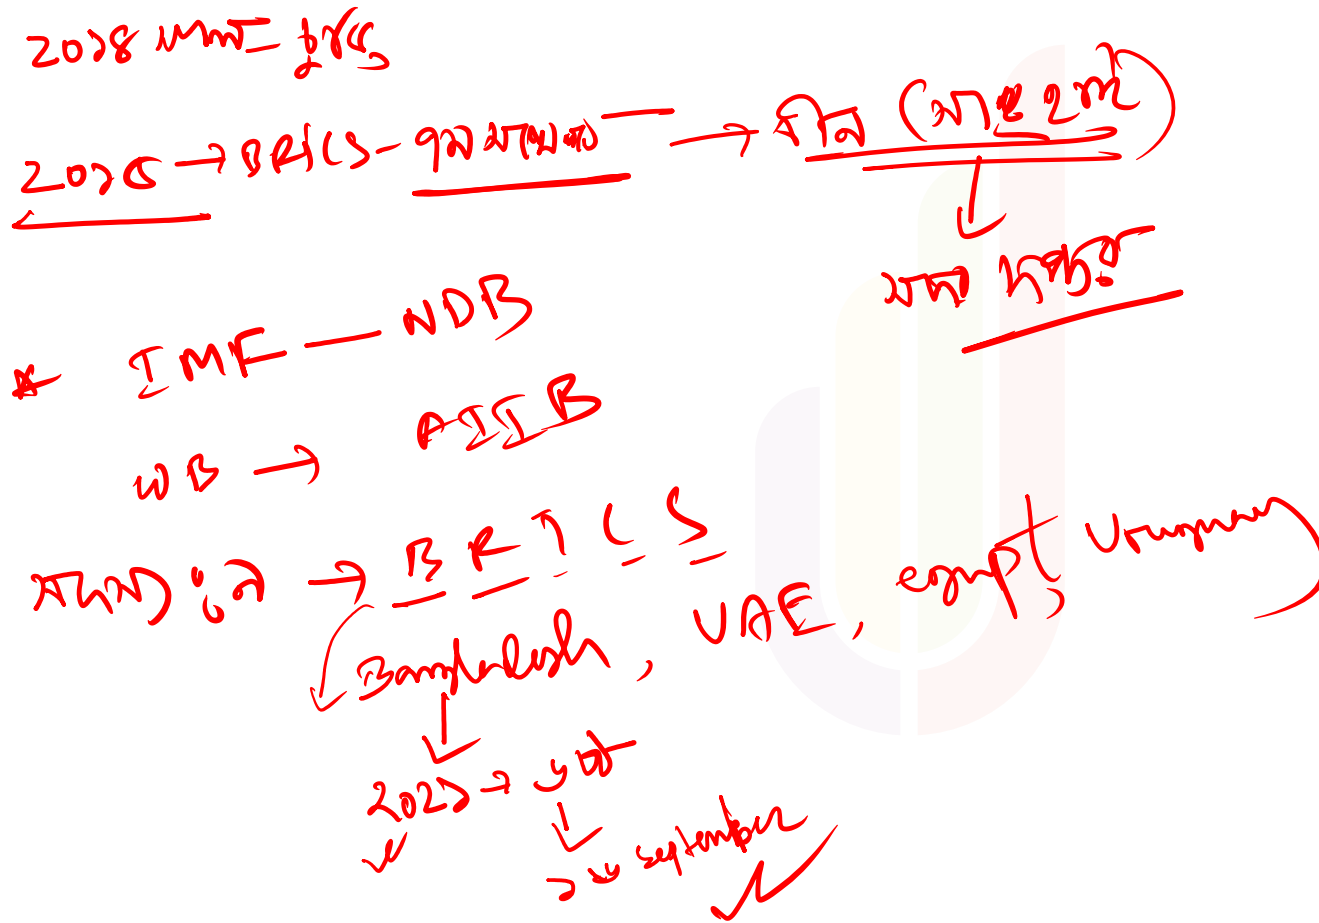 ২০১৪ সালে - চুক্তি
২০১৫ → BRICS - ৭ম সম্মেলন → চীন (সাংহাই)
সদর দপ্তর
* IMF — NDB
WB → AIIB
সদস্য : → BRICS
Bangladesh, UAE, egypt, Uruguay
২০২১ →
september